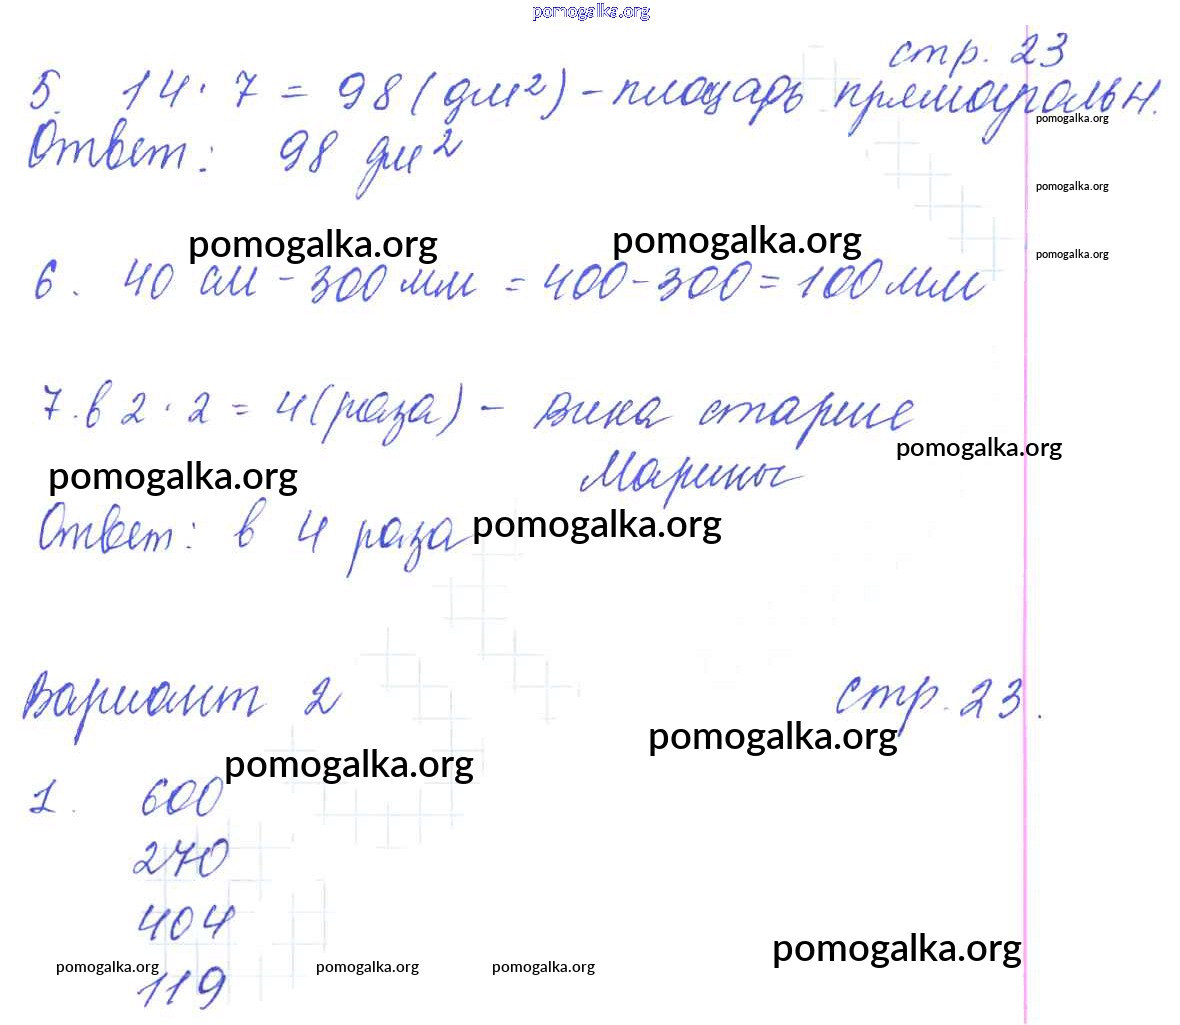 pomogalka.org
стр. 23
5. 14 · 7 = 98 (дм²) – площадь прямоугольн.
pomogalka.org
Ответ: 98 дм²
pomogalka.org
pomogalka.org pomogalka.org
pomogalka.org
6. 40 см – 300 мм = 400 – 300 = 100 мм
7. в 2 · 2 = 4 (раза) – Вика старше
pomogalka.org
Марины
pomogalka.org
Ответ: в 4 раза
pomogalka.org
Вариант 2 стр. 23.
pomogalka.org
pomogalka.org
1. 600
270
404
pomogalka.org
pomogalka.org pomogalka.org pomogalka.org
119